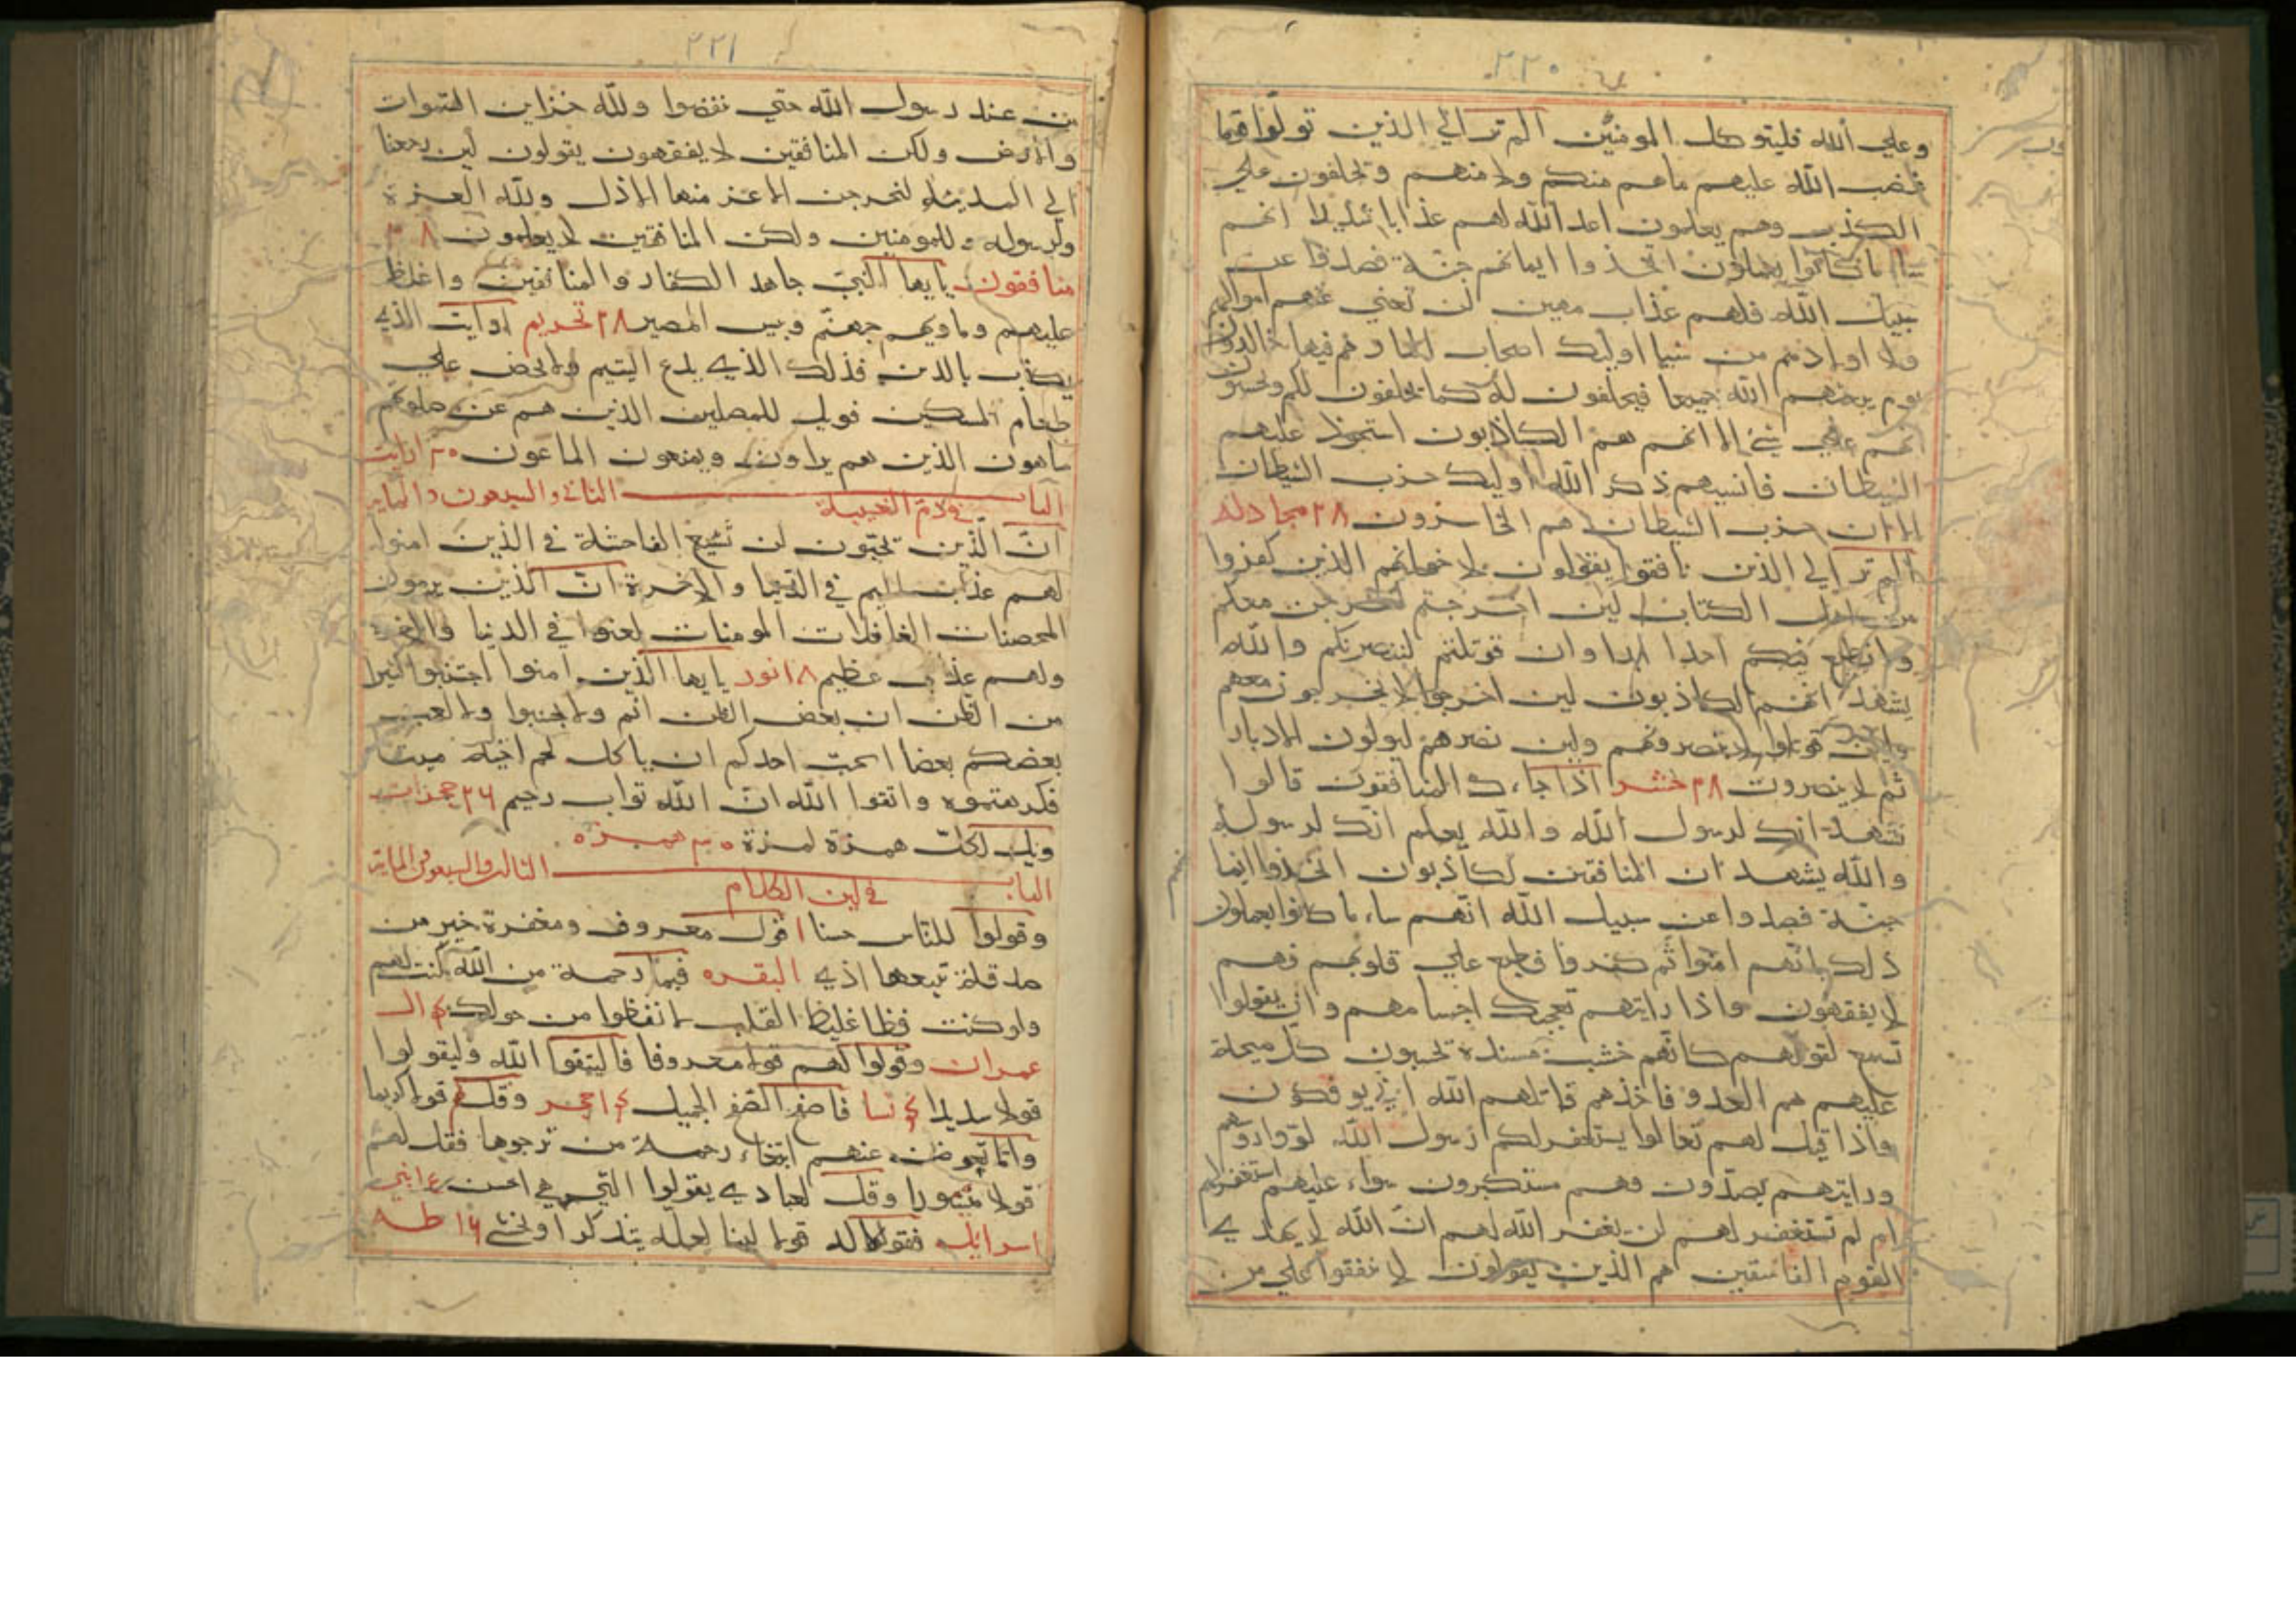 ٢٢٠
وعلي الله فليتوكل المومنين الم تر الي الذين تولوا قوما
غضب الله عليهم ما هم منكم ولا منهم وتحلفون علي
الكذب وهم يعلمون اعد الله لهم عذابا شديدا انهم
ساء ما كانوا يعملون اتخذوا ايمانهم جنة فصدوا عن
سبيل الله فلهم عذاب مهين لن تغني عنهم اموالهم
ولا اولادهم من شيا اوليك اصحاب النار هم فيها خالدون
يوم يبعثهم الله جميعا فيحلفون له كما يحلفون لكم ويحسبون
انهم علي شئ الا انهم هم الكاذبون استحوذ عليهم
الشيطان فانسيهم ذكر الله اوليك حزب الشيطان
الا ان حزب الشيطان هم الخاسرون ٢٨ مجادلة
الم تر الي الذين نافقوا يقولون لاخوانهم الذين كفروا
من اهل الكتاب لين اخرجتم لنخرجن معكم
ولا نطيع فيكم احدا ابدا وان قوتلتم لننصرنكم والله
يشهد انهم لكاذبون لين اخرجوا لا يخرجون معهم
ولين قوتلوا لا ينصرونهم ولين نصرهم ليولون الادبار
ثم لا ينصرون ٢٨ حشر اذا جاءك المنافقون قالوا
نشهد انك لرسول الله والله يعلم انك لرسوله
والله يشهد ان المنافقين لكاذبون اتخذوا ايما
جنة فصدوا عن سبيل الله انهم ساء ما كانوا يعملون
ذلك بانهم امنوا ثم كفروا فطبع علي قلوبهم فهم
لا يفقهون واذا رايتهم تعجبك اجسامهم وان يقولوا
تسمع لقولهم كانهم خشب مسندة تحسبون كل صيحة
عليهم هم العدو فاخذهم قاتلهم الله اني يوفكون
واذا قيل لهم تعالوا يستغفر لكم رسول الله لووا روسهم
ورايتهم يصدون وهم مستكبرون سواء عليهم استغفرت لهم
ام لم تستغفر لهم لن يغفر الله لهم ان الله لا يهدي
القوم الفاسقين هم الذين يقولون لا تنفقوا علي من
٢٢١
من عند رسول الله حتي ينفضوا ولله خزاين السموات
والارض ولكن المنافقين لا يفقهون يقولون لين رجعنا
الي المدينة لنخرجن الاعز منها الاذل ولله العزة
ولرسوله وللمومنين ولكن المنافقين لا يعلمون ٢٨
منافقون يايها النبي جاهد الكفار والمنافقين واغلظ
عليهم وماويهم جهنم وبيس المصير ٢٨ تحريم ارايت الذي
يكذب بالدين فذلك الذي يدع اليتيم ولا يحض علي
طعام المسكين فويل للمصلين الذين هم عن صلوتهم
ساهون الذين هم يراون ويمنعون الماعون ٣٠ ارايت
الباب الثاني والسبعون والماية
في ذم الغيبة
ان الذين تحبون ان تشيع الفاحشة في الذين امنوا
لهم عذاب اليم في الدنيا والاخرة ان الذين يرمون
المحصنات الغافلات المومنات لعنوا في الدنيا والاخرة
ولهم عذاب عظيم ١٨ نور يايها الذين امنوا اجتنبوا كثيرا
من الظن ان بعض الظن اثم ولا تجسسوا ولا يغتب
بعضكم بعضا ايحب احدكم ان ياكل لحم اخيه ميتا
فكرهتموه واتقوا الله ان الله تواب رحيم ٢٦ حجرات
ويل لكل همزة لمزة ٣٠ همزه
الباب الثالث والسبعون والماية
في لين الكلام
وقولوا للناس حسنا ١ قول معروف ومغفرة خير من
صدقة تتبعها اذي البقره فبما رحمة من الله لنت لهم
ولو كنت فظا غليظ القلب لانفضوا من حولك ٤ ال
عمران وقولوا لهم قولا معروفا فاليتقوا الله وليقولوا
قولا سديدا ٤ نسا فاصفح الصفح الجميل حجر وقل لهم قولا كريما
واما تعرضن عنهم ابتغاء رحمة من ترجوها فقل لهم
قولا ميسورا وقل لعبادي يقولوا التي هي احسن بني
اسرايل فقولا له قولا لينا لعله يتذكر او يخشي ١٦ طه